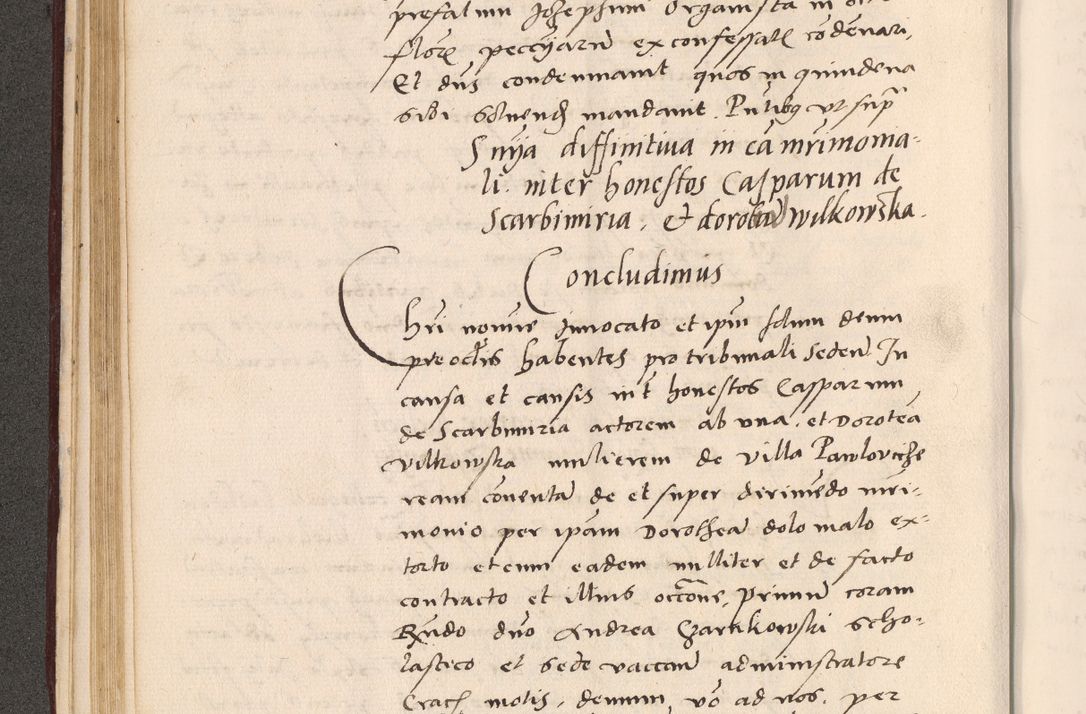 prefatum Josephum Organista in octo
floren peccuarum ex confessatis codenari,
Et dns condemnavit quos in quindena
sibi solvend mandavit. Pntibus ut supra
Snija diffinitiva in ca mrimonia-
li. inter honestos Casparum de
Scarbimiria, et dorotea wilkowska.
Concludimus
Chri nomine Innocato et ipm solum deum
pre oclis habentes pro tribunali sedem In
causa et causis int honestos Casparum
de Scarbimiria actorem ab una, et Dorotea
Vilkowska mulierem de villa Pawlovicze
ream conventa de et super dirimedo mri-
monio per ipsam Dorothea dolo malo ex-
torto et cum eadem nulliter et de facto
contracto et illius occone, primum coram
Rndo dno Andrea Czarnkowski scho-
lastico et sede vaccan administratore
Crac motis, demum vo ad nos, per